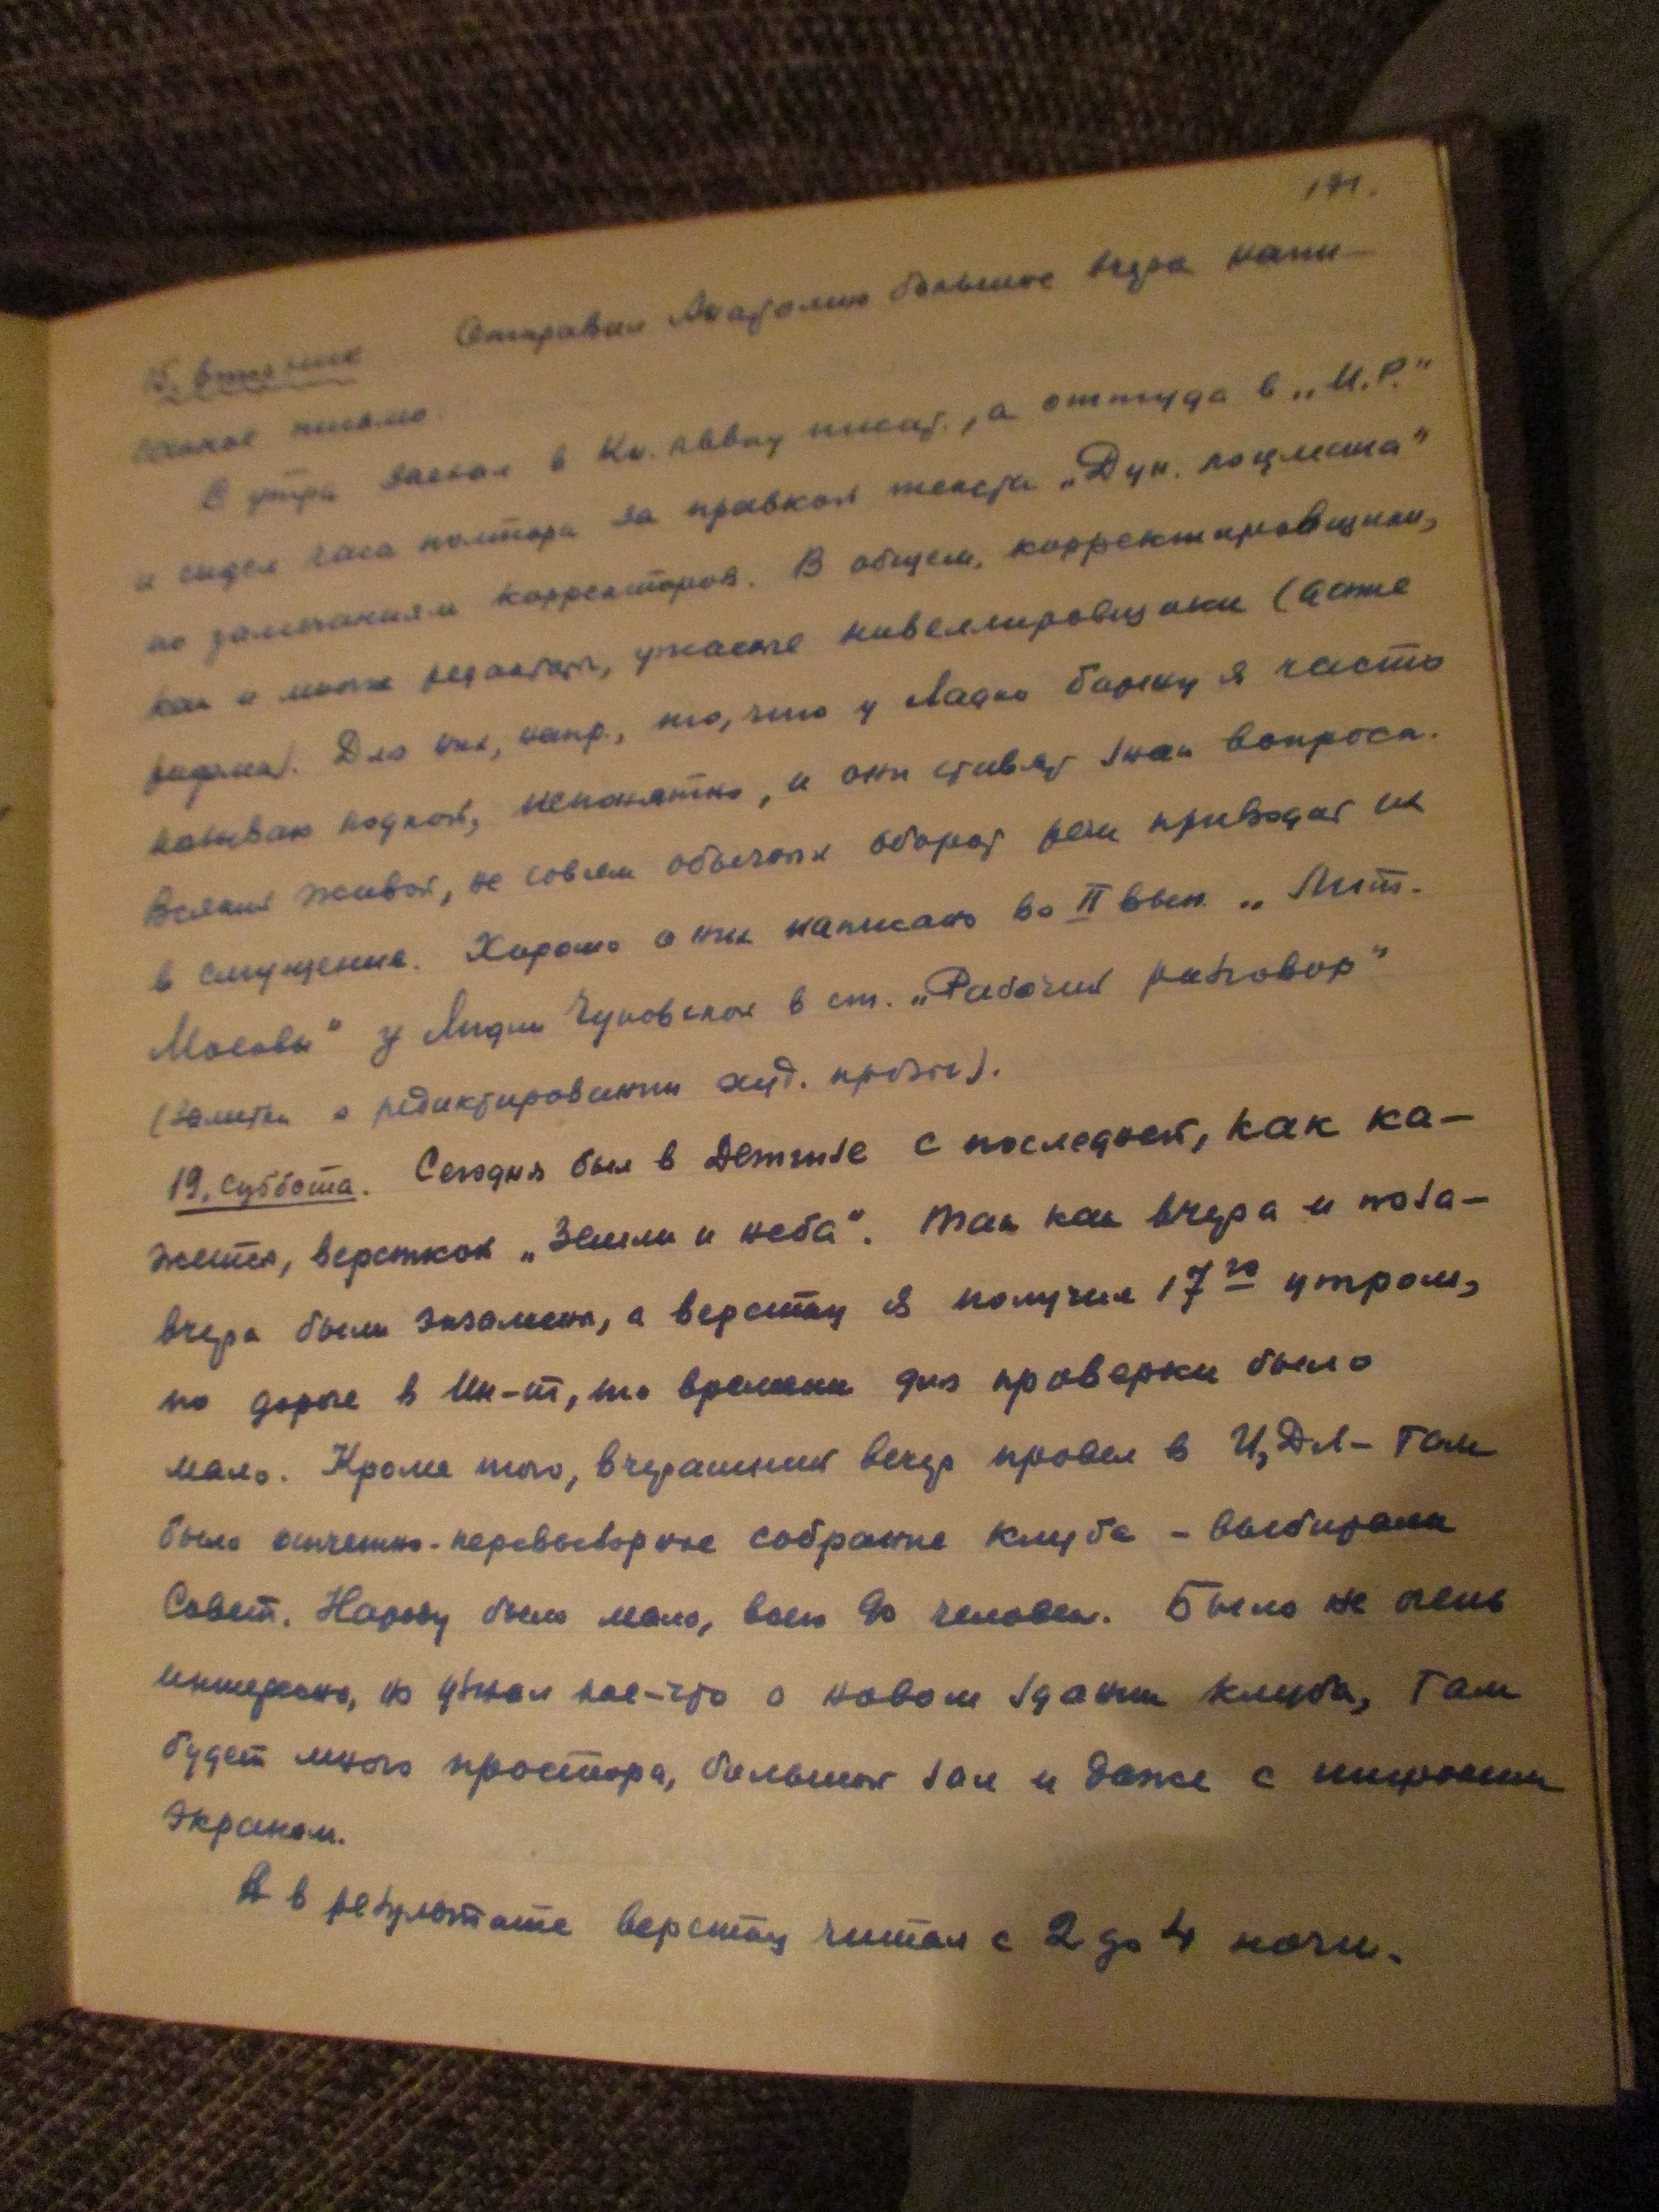 171.
15, вторник Отправил Анатолию большое вчера напи-
санное письмо.
С утра заехал в Кн. лавку писат., а оттуда в „М.Р."
и сидел часа полтора за правкой текста „Дун.
по замечаниям корректоров. В общем, корректировщики,
как и многие редакторы, ужасные нивеллировщики (даже
Для них, напр., то, что у Ладо я часто
называю непонятно, и они ставят знак вопроса.
Всякий живой, не совсем обычный оборот речи приводит их
в смущение. Хорошо о них написано во II вып. „Лит.
Москвы" у Лидии Чуковской в ст. „Рабочий разговор"
(Заметки о редактировании худ. прозы).
19, суббота. Сегодня был в Детгизе с последней, как ка-
жется, версткой „Земли и неба". Так как вчера и поза-
вчера были экзамены, а верстку я получил 17го утром,
по дороге в Ин-т, то времени для проверки было
мало. Кроме того, вчерашний вечер провел в ЦДЛ - там
было отчетно-перевыборное собрание клуба - выбирали
Совет. Народу было мало, всего человек. Было не очень
интересно, но узнал кое-что о новом здании клуба, там
будет много простора, большой зал и даже с широким
экраном.
А в результате верстку читал с 2 до 4 ночи.